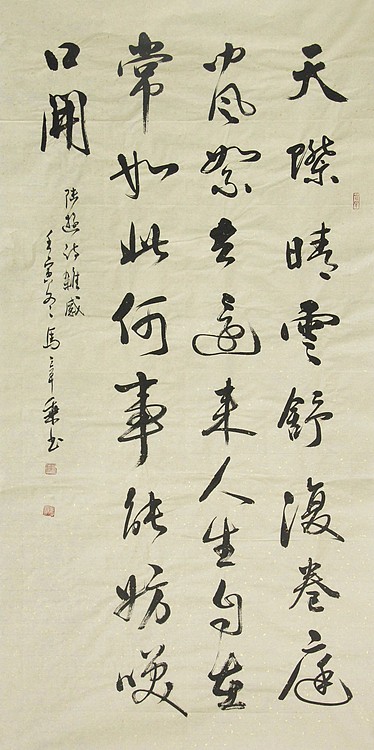 天際晴雲舒復卷庭
中風絮去還來人生自在
常如此何事能妨咲
口開
陸游詩雜感
壬寅冬馬書